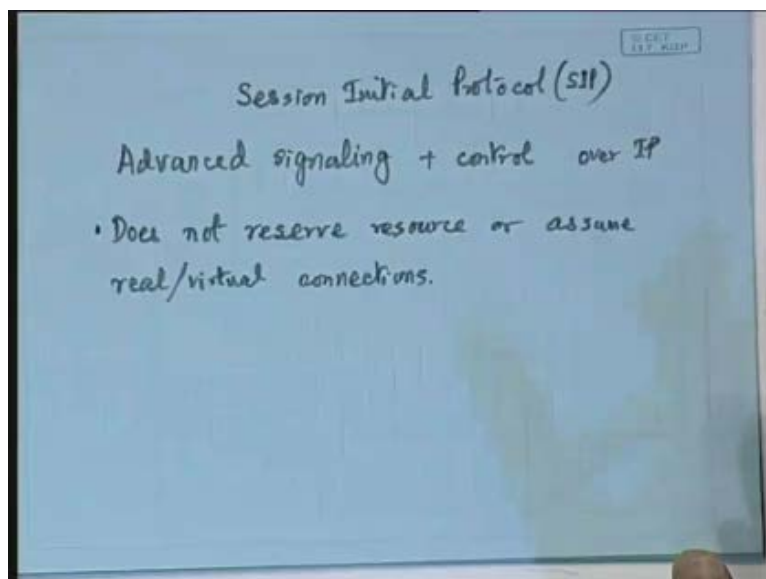 Session Initial Protocol (SIP)
Advanced signaling + control over IP
• Does not reserve resource or assume
real/virtual connections.